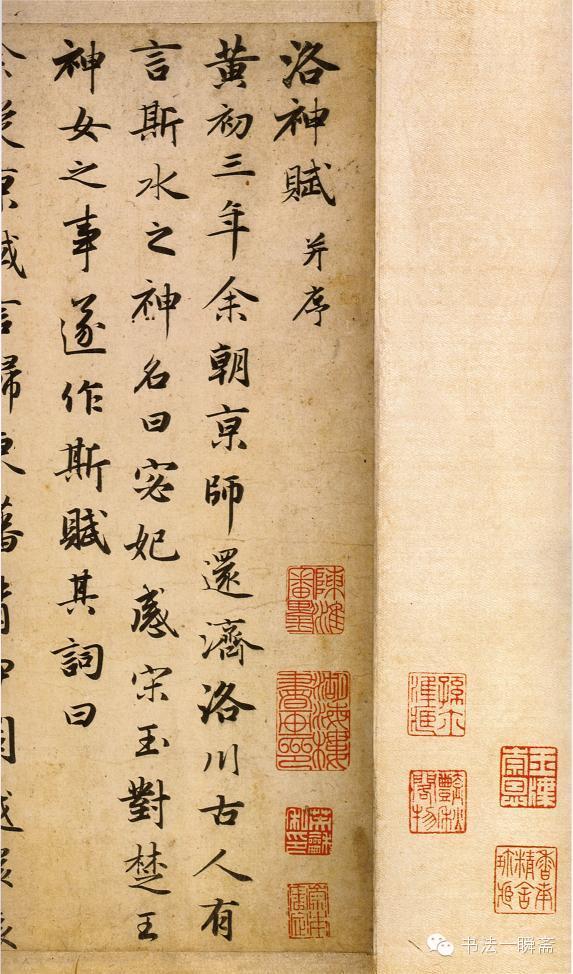 洛神賦 并序
黄初三年余朝京師還濟洛川古人有
言斯水之神名曰宓妃感宋玉對楚王
神女之事遂作斯賦其詞曰
京域言歸東藩背
书法一瞬斋